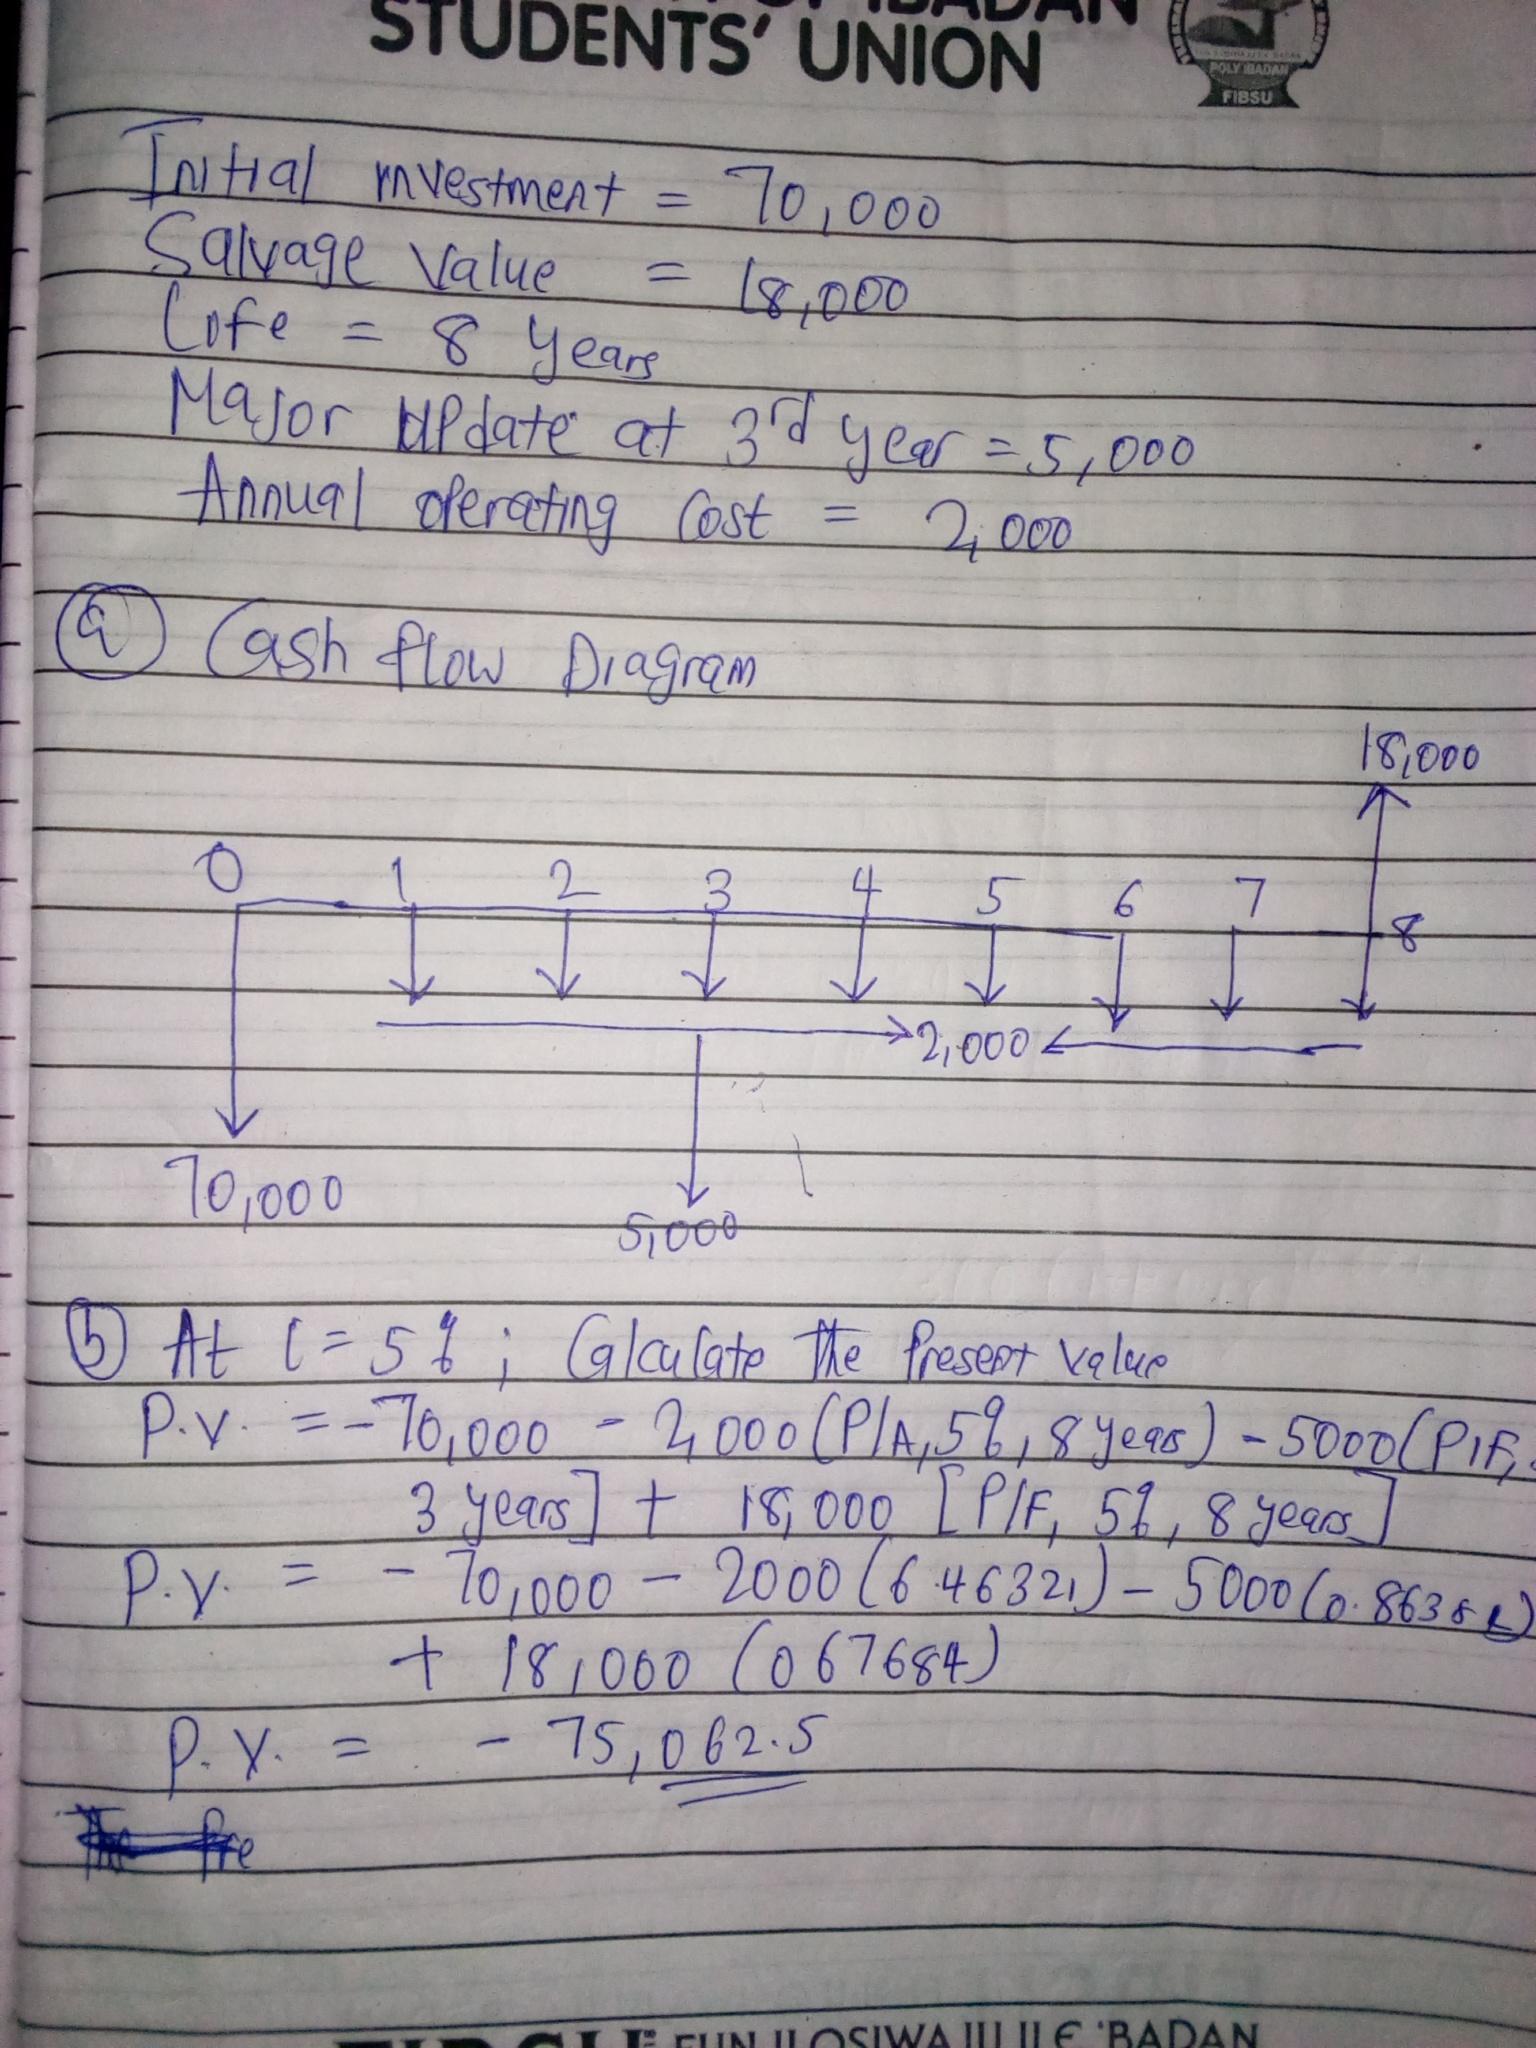 STUDENTS' UNION
POLY IBADAN
FIBSU
Initial investment = 70,000
Salvage Value = 18,000
Life = 8 years
Major update at 3rd year = 5,000
Annual operating Cost = 2,000
(a) Cash flow Diagram
18,000
0 1 2 3 4 5 6 7 8
2,000
70,000
5,000
(b) At i = 5%; Calculate the Present Value
P.V. = -70,000 - 2,000 (P/A, 5%, 8 years) - 5000 (P/F,
3 years] + 18,000 [P/F, 5%, 8 years]
P.V. = - 70,000 - 2000 (6.46321) - 5000
+ 18,000 (067684)
P.V. = - 75,062.5
The Pre
EUN ILOSIWAJU ILE 'BADAN